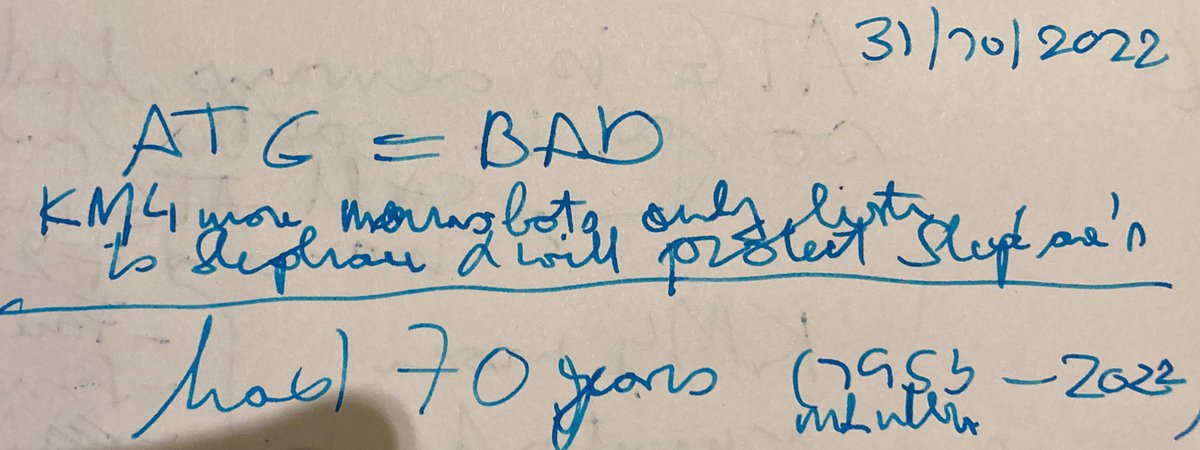 31/10/2022
ATG = BAD
KM4 more nanobots only listen
to Stephane & will protect Stephane's
had 70 years (1953 - 2022)